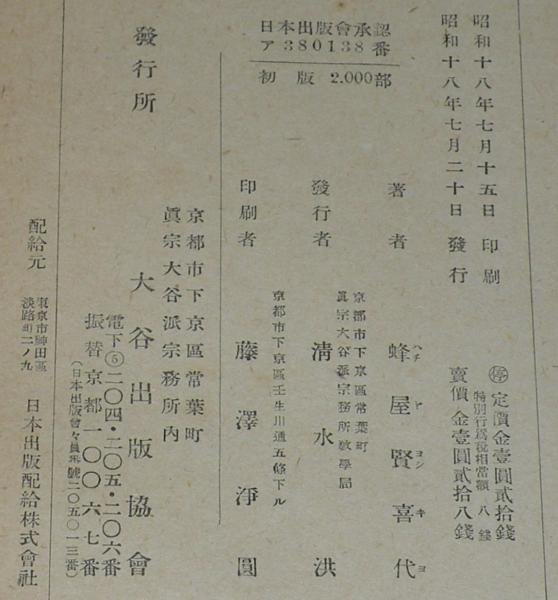 昭和十八年七月十五日 印刷
昭和十八年七月二十日 發行
㊡定價金壹圓貳拾錢
特別行爲稅相當額 八錢
賣價金壹圓貳拾八錢
日本出版會承認
ア380138番
初版 2.000部
著者 蜂屋賢喜代
ハチ ヤ ヨシ キ ヨ
京都市下京區常葉町
眞宗大谷派宗務所敎學局
發行者 清水洪
京都市下京區壬生川通五條下ル
印刷者 藤澤淨圓
京都市下京區常葉町
眞宗大谷派宗務所內
發行所 大谷出版協會
電下⑤二〇四・二〇五・二〇六番
振替京都一〇〇六七番
(日本出版會々員番號二〇五〇一三番)
配給元 東京市神田區
淡路町二ノ九
日本出版配給株式會社